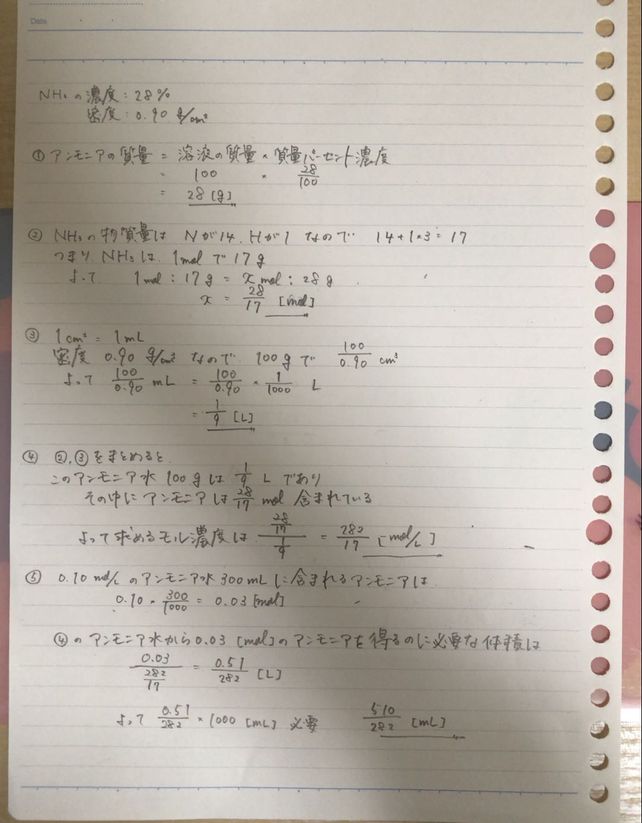 Date
NH₃の濃度：28%
密度：0.90 g/cm³
① アンモニアの質量 = 溶液の質量 × 質量パーセント濃度
= 100 × 28/100
= 28 [g]
② NH₃の物質量は Nが14, Hが1 なので 14+1×3=17
つまり NH₃は 1molで17g
よって 1mol : 17g = x mol : 28g
x = 28/17 [mol]
③ 1cm³ = 1mL
密度 0.90 g/cm³ なので 100gで 100/0.90 cm³
よって 100/0.90 mL = 100/0.90 × 1/1000 L
= 1/9 [L]
④ ②,③をまとめると
このアンモニア水 100gは 1/9 L であり
その中にアンモニアは 28/17 mol 含まれている
よって求めるモル濃度は (28/17)/(1/9) = 282/17 [mol/L]
⑤ 0.10 mol/L のアンモニア水 300mL に含まれるアンモニアは
0.10 × 300/1000 = 0.03 [mol]
④のアンモニア水から 0.03 [mol] のアンモニアを得るのに必要な体積は
0.03/(282/17) = 0.51/282 [L]
よって 0.51/282 × 1000 [mL] 必要 510/282 [mL]